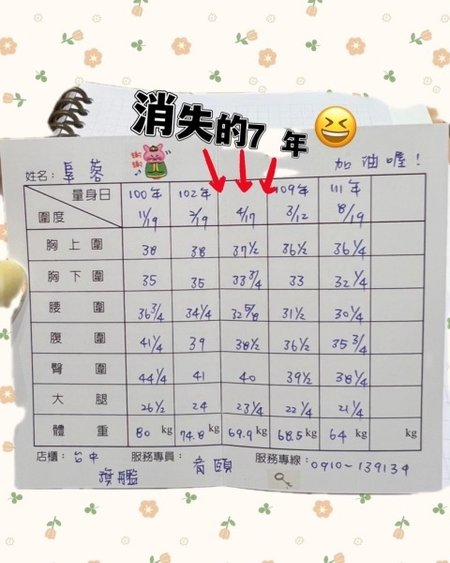 消失的7年
姓名：阜蓉 謝謝 加油喔！
量身日 100年 102年 109年 111年
圍度 11/19 2/19 4/17 3/12 8/19
胸上圍 38 38 37½ 36½ 36¼
胸下圍 35 35 33¾ 33 32¼
腰圍 36¾ 34¼ 32⅝ 31½ 30¼
腹圍 41¼ 39 38½ 36½ 35¾
臀圍 44¼ 41 40 39½ 38¼
大腿 26½ 24 23¼ 22¼ 21¼
體重 80 kg 74.8 kg 69.9 kg 68.5 kg 64 kg kg
店櫃：台中 服務專員：音頤 服務專線：0910-139134
旗艦